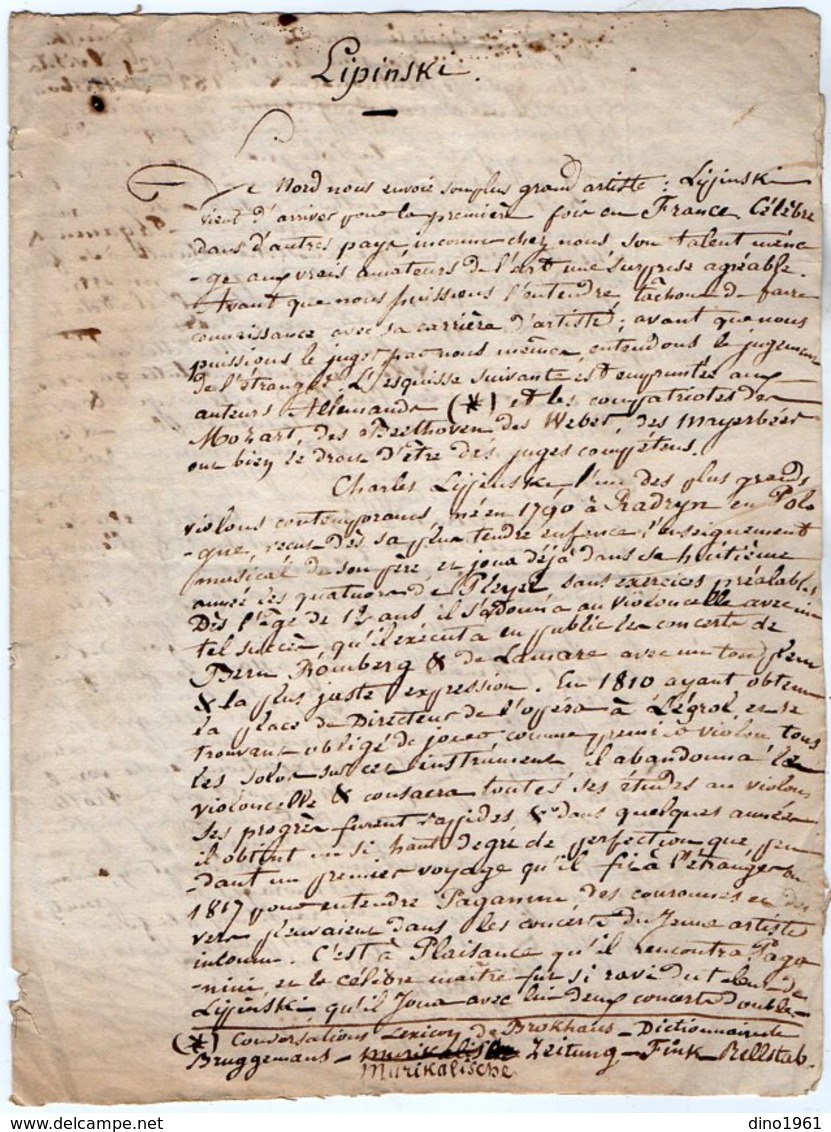 Lipinski.
Le Nord nous envoie son plus grand artiste : Lipinski
vient d'arriver pour la première fois en France. Célèbre
dans d'autres pays, inconnu chez nous son talent ména
-ge aux vrais amateurs de l'art une surprise agréable.
Avant que nous puissions l'entendre, tâchons de faire
connaissance avec sa carrière d'artiste ; avant que nous
puissions le juger par nous mêmes, entendons le jugement
de l'étranger. L'esquisse suivante est empruntée aux
auteurs Allemands (*) et les compatriotes des
Mozart, des Beethoven des Weber, des Mayerbéer
ont bien le droit d'être des juges compétens.
Charles Lipinski l'un des plus grands
violons contemporains, né en 1790 à Radzyn en Polo
-gne, reçut dès sa plus tendre enfance l'enseignement
musical de son père et joua déjà dans sa huitième
année les quatuors de Pleyel sans exercices préalables
Dès l'âge de 12 ans, il s'adonna au violoncelle avec un
tel succès, qu'il exécuta en public les concerts de
Bern Romberg & de Lamare avec un ton plein
& la plus juste expression. En 1810 ayant obtenu
la place de Directeur de l'opéra à Légrol, et se
trouvant obligé de jouer comme premier violon tous
les solos sur cet instrument il abandonna le
violoncelle & consacra toutes ses études au violon
Ses progrès furent rapides & dans quelques années
il obtint un si haut degré de perfection que, pen
-dant un premier voyage qu'il fit à l'étranger en
1817 pour entendre Paganini, des couronnes et des
vers pleuvaient dans les concerts du Jeune artiste
inconnu. C'est à Plaisance qu'il rencontra Paga
-nini, et le célèbre maître fut si ravi du talent de
Lipinski qu'il Joua avec lui deux concerts doubles
(*) Conversations Lexicon de Brokhaus - Dictionnaire de
Bruggemans - Zeitung - Fink Rellstab.
Murikalische
dino1961